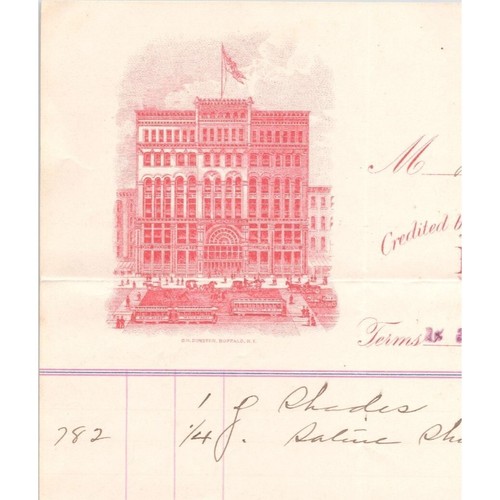 M
Credited b
Terms 2%
BUFFALO, N.Y.
1 g Shades
782 1/4 g. Satine Sh